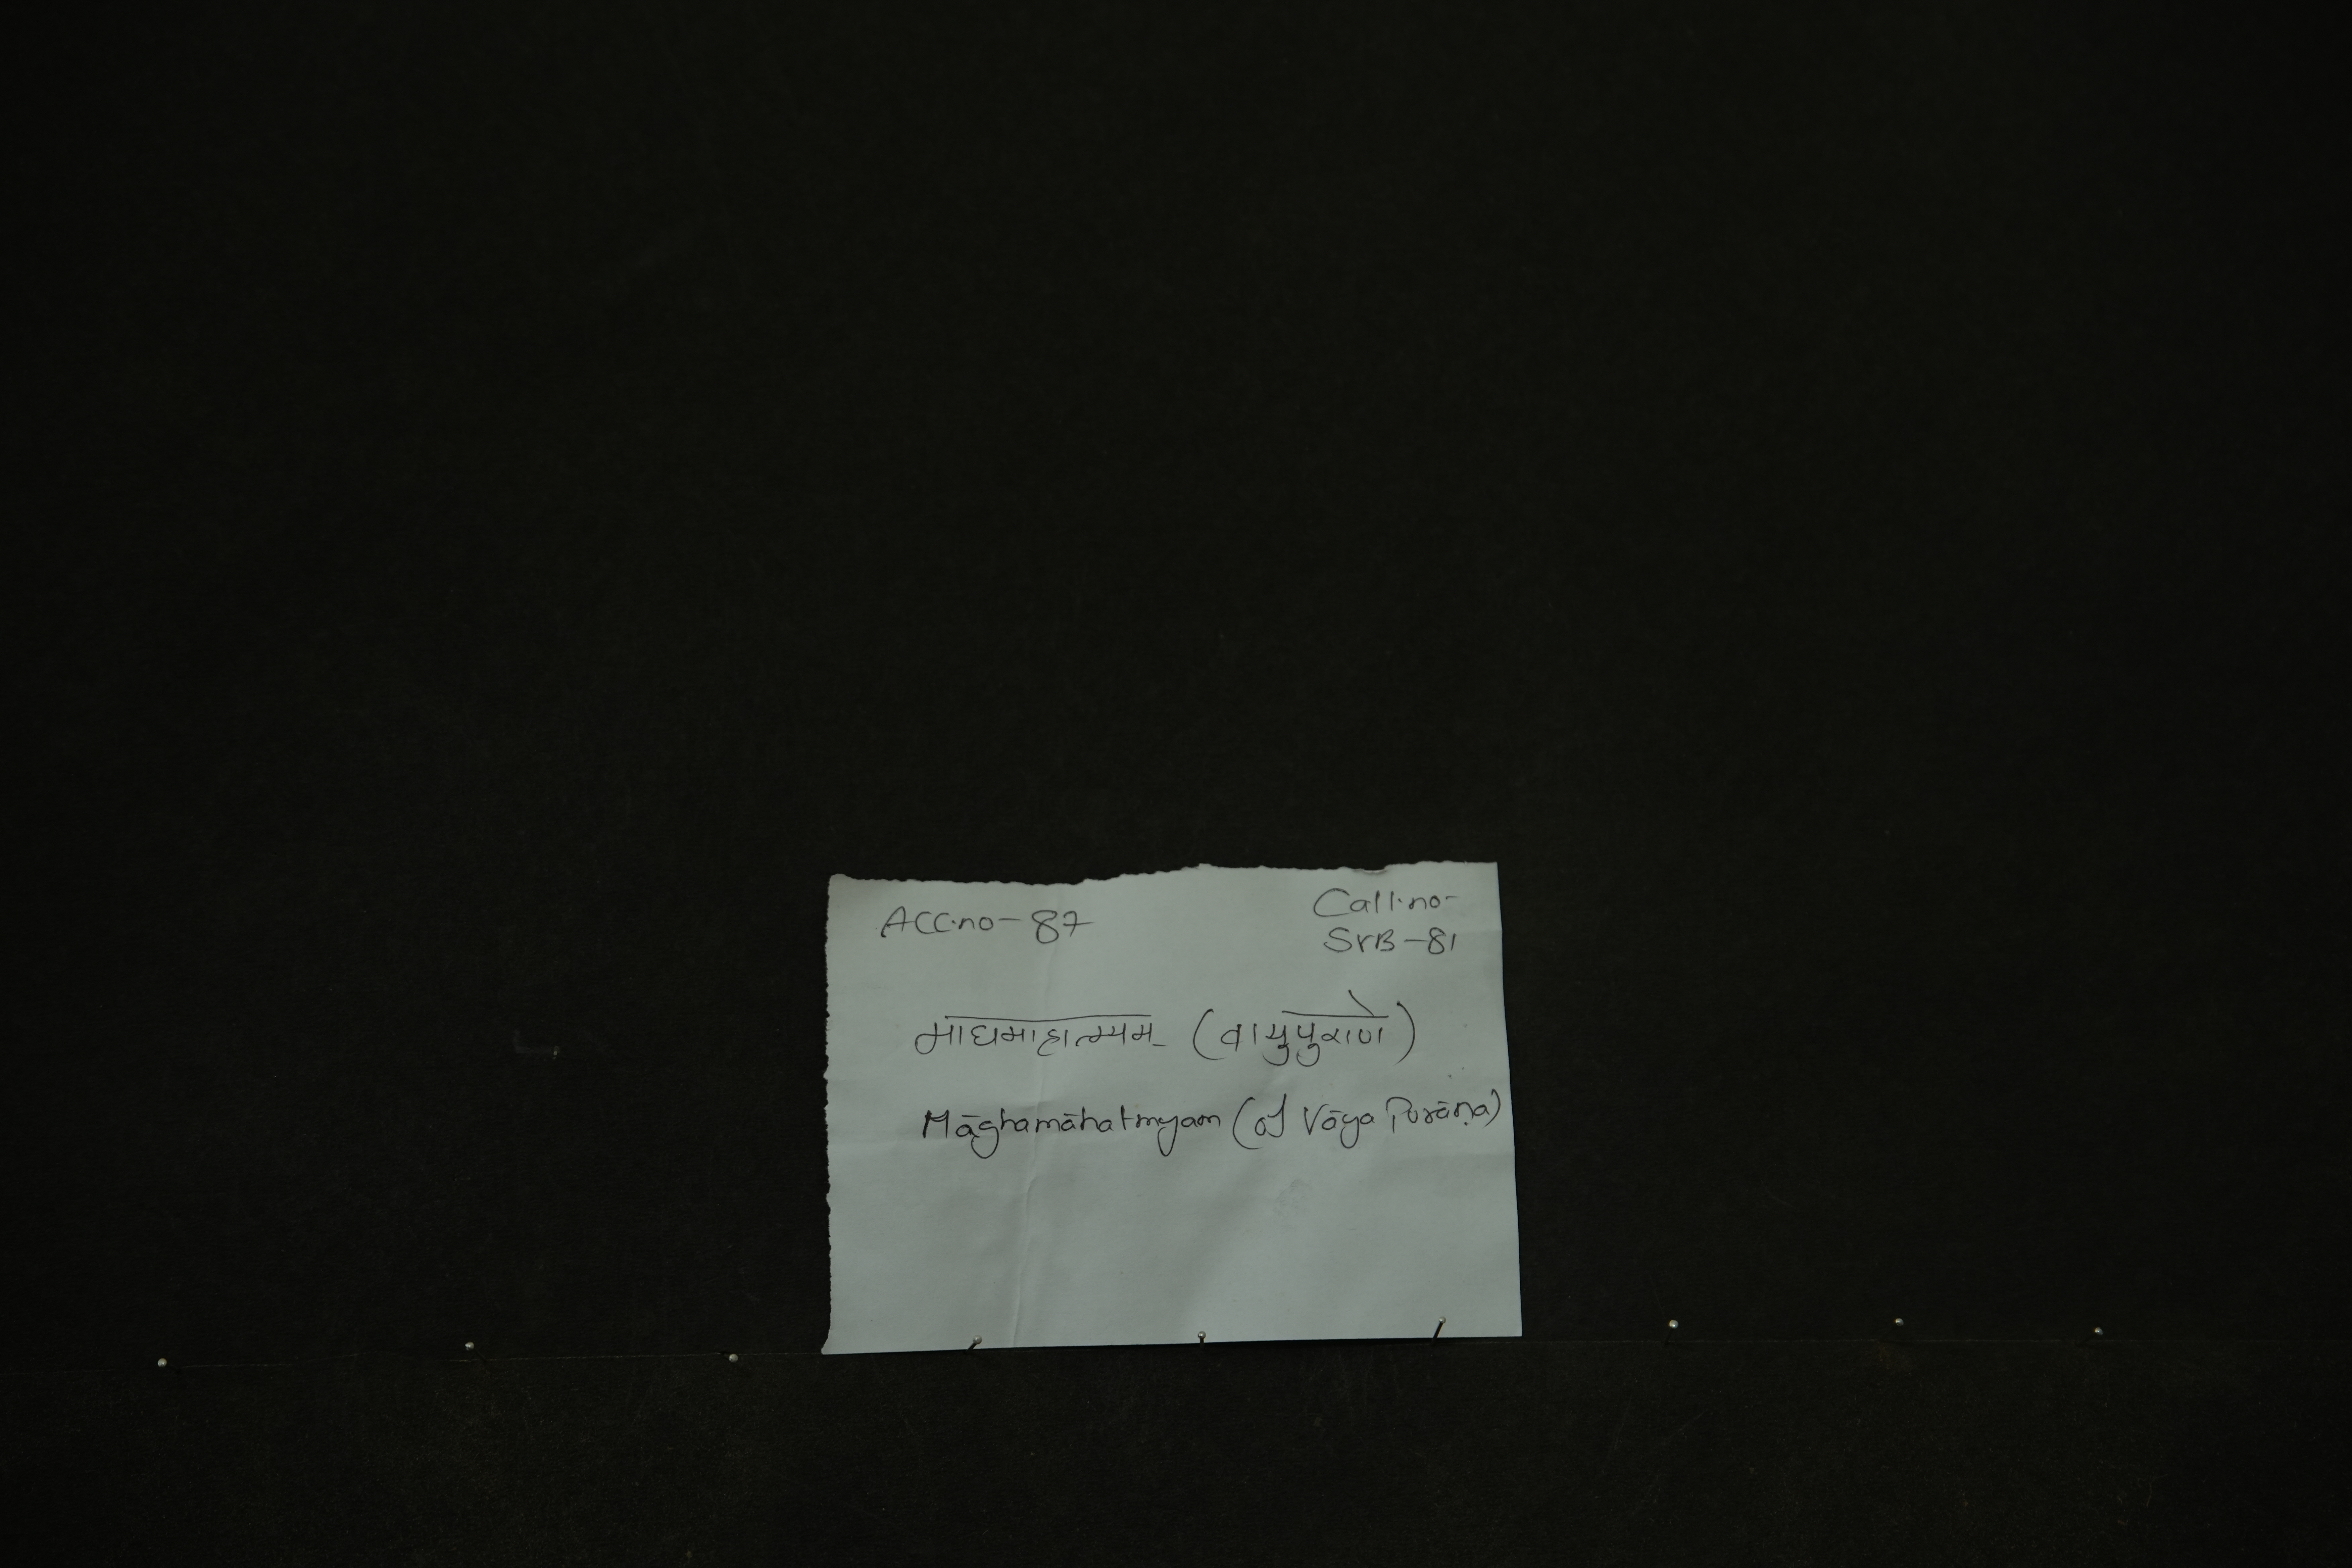 Acc.no- 87
Call.no-
SrB-81
माघमाहात्म्यम् (वायुपुराणे)
Māghamāhatmyam (of Vāya Purāṇa)